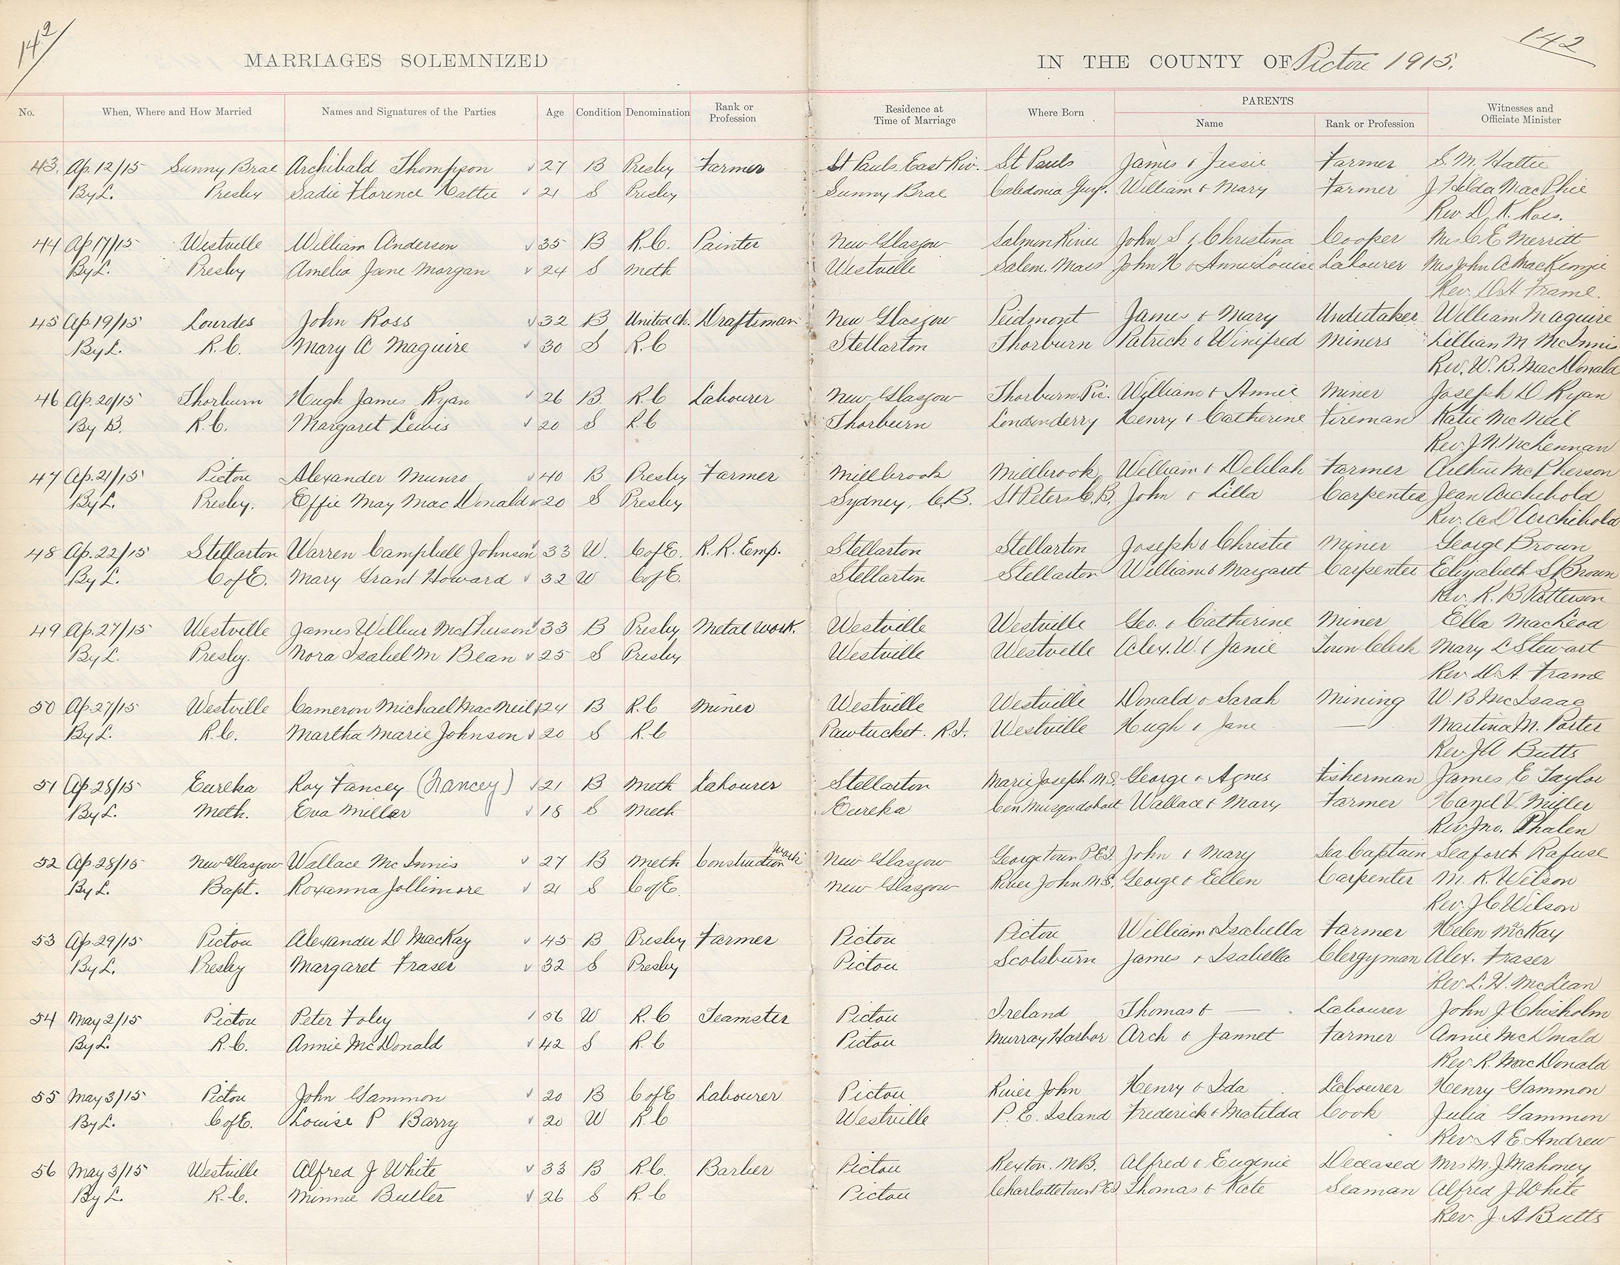 142
142
MARRIAGES SOLEMNIZED IN THE COUNTY OF Pictou 1915.
No. When, Where and How Married Names and Signatures of the Parties Age Condition Denomination Rank or Profession Residence at Time of Marriage Where Born PARENTS Name Rank or Profession Witnesses and Officiate Minister
43. Ap. 12/15 Sunny Brae Archibald Thompson 27 B Presby Farmer St Pauls East Riv. St Pauls James & Jessie Farmer S. M. Hattie
By L. Presby Sadie Florence Hattie 21 S Presby Sunny Brae Caledonia Guy. William & Mary Farmer J Hilda MacPhie
Rev D. K. Ross.
44 Ap 17/15 Westville William Anderson 35 B R.C. Painter New Glasgow Salmon River John S & Christina Cooper Mrs C E Merritt
By L. Presby Amelia Jane Morgan 24 S Meth Westville Salem. Mass John H & Annie Louise Labourer Mrs John A MacKenzie
Rev. D A Frame.
45 Ap 19/15 Lourdes John Ross 32 B United Ch. Draftsman New Glasgow Piedmont James & Mary Undertaker William Maguire
By L. R.C. Mary A Maguire 30 S R.C Stellarton Thorburn Patrick & Winifred Miners Lillian M McInnis
Rev. W. B. MacDonald
46 Ap. 20/15 Thorburn Hugh James Ryan 26 B R.C Labourer New Glasgow Thorburn Pic. William & Annie Miner Joseph D Ryan
By B. R.C. Margaret Lewis 20 S R.C Thorburn Londonderry Henry & Catherine Fireman Katie McNeil
Rev. J. N. McLennan
47 Ap. 21/15 Pictou Alexander Munro 40 B Presby Farmer Millbrook Millbrook William & Delilah Farmer Arthur McPherson
By L. Presby. Effie May MacDonald 20 S Presby Sydney, C.B. St Peters C.B. John & Lilla Carpenter Jean Archibold
Rev. A D Archibold
48 Ap. 22/15 Stellarton Warren Campbell Johnson 33 W. C of E. R.R. Emp. Stellarton Stellarton Joseph & Christie Miner George Brown
By L. C of E. Mary Grant Howard 32 W C of E Stellarton Stellarton William & Margaret Carpenter Elizabeth S Brown
Rev. R. B Patterson
49 Ap. 27/15 Westville James Wilbur McPherson 33 B Presby Metal Work. Westville Westville Geo. & Catherine Miner Ella MacLeod
By L. Presby. Nora Isabel M Bean 25 S Presby Westville Westville Alex. W. & Janie Town Clerk Mary L Stewart
Rev. D. A Frame
50 Ap. 27/15 Westville Cameron Michael MacNeil 24 B R.C Miner Westville Westville Donald & Sarah Mining W B McIsaac
By L. R.C. Martha Marie Johnson 20 S R.C Pawtucket. R.I. Westville Hugh & Jane — Martina M. Porter
Rev J A Butts
51 Ap. 28/15 Eureka Roy Fancey (Nancey) 21 B Meth Labourer Stellarton Marie Joseph N.S. George & Agnes Fisherman James E Taylor
By L. Meth. Eva Millar 18 S Meth Eureka Cen. Musquodoboit Wallace & Mary Farmer Hazel V. Miller
Rev. Jno. Phalen
52 Ap 28/15 New Glasgow Wallace McInnis 27 B Meth Construction Work New Glasgow Georgetown P.E.I. John & Mary Sea Captain Seaforth Rafuse
By L. Bapt. Roxanna Jollimore 21 S C of E New Glasgow River John N.S. George & Ellen Carpenter M. K. Wilson
Rev. J C Wilson
53 Ap. 29/15 Pictou Alexander D MacKay 45 B Presby Farmer Pictou Pictou William & Isabella Farmer Helen McKay
By L. Presby Margaret Fraser 32 S Presby Pictou Scotsburn James & Isabella Clergyman Alex. Fraser
Rev. L. H. McLean
54 May 2/15 Pictou Peter Foley 56 W R.C Teamster Pictou Ireland Thomas & — Labourer John J Chisholm
By L. R.C. Annie McDonald 42 S R.C Pictou Murray Harbor Arch & Jannet Farmer Annie McDonald
Rev. R. MacDonald
55 May 3/15 Pictou John Gammon 20 B C of E Labourer Pictou River John Henry & Ida Labourer Henry Gammon
By L. C of E. Louise P Barry 20 W R.C Westville P. E. Island Frederick & Matilda Cook Julia Gammon
Rev. A E Andrew
56 May 3/15 Westville Alfred J White 33 B R.C. Barber Pictou Rexton. N.B. Alfred & Eugenie Deceased Mrs M J Mahoney
By L. R.C. Minnie Butler 26 S R.C Pictou Charlottetown P.E.I Thomas & Kate Seaman Alfred J White
Rev. J. A Butts